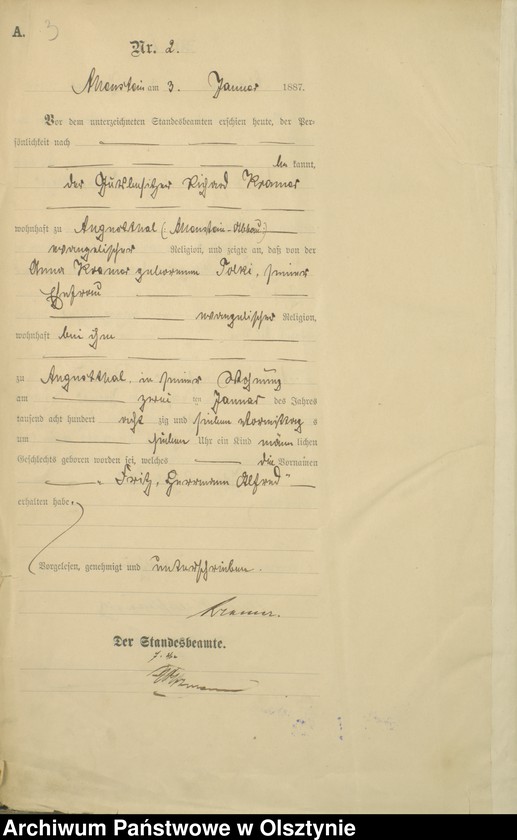 A. 3
Nr. 2.
Allenstein am 3. Januar 1887.
Vor dem unterzeichneten Standesbeamten erschien heute, der Per-
sönlichkeit nach
be kannt,
der Gutsbesitzer Richard Kramer
wohnhaft zu Augustthal (: Allenstein-Abbau :)
evangelischer Religion, und zeigte an, daß von der
Anna Kramer geborenen Tolki, seiner
Ehefrau
evangelischer Religion,
wohnhaft bei ihm
zu Augustthal in seiner Wohnung
am zwei ten Januar des Jahres
tausend acht hundert acht zig und sieben Vormittag s
um sieben Uhr ein Kind männ lichen
Geschlechts geboren worden sei, welches die Vornamen
„Fritz, Herrmann Alfred"
erhalten habe.
Vorgelesen, genehmigt und unterschrieben.
Kramer.
Der Standesbeamte.
Archiwum Państwowe w Olsztynie